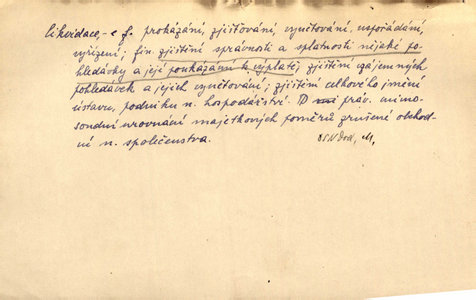 likvidace, -e f. prokázání, zjišťování, vyúčtování, uspořádání,
vyřízení; fin. zjištění správnosti a splatnosti nějaké po-
hledávky a její poukázání k výplatě; zjištění vzájemných
pohledávek a jejich vyúčtování; zjištění celkového jmění
ústavu, podniku n. hospodářství. práv. mimo-
soudní urovnání majetkových poměrů zrušené obchod-
ní n. společenstva.